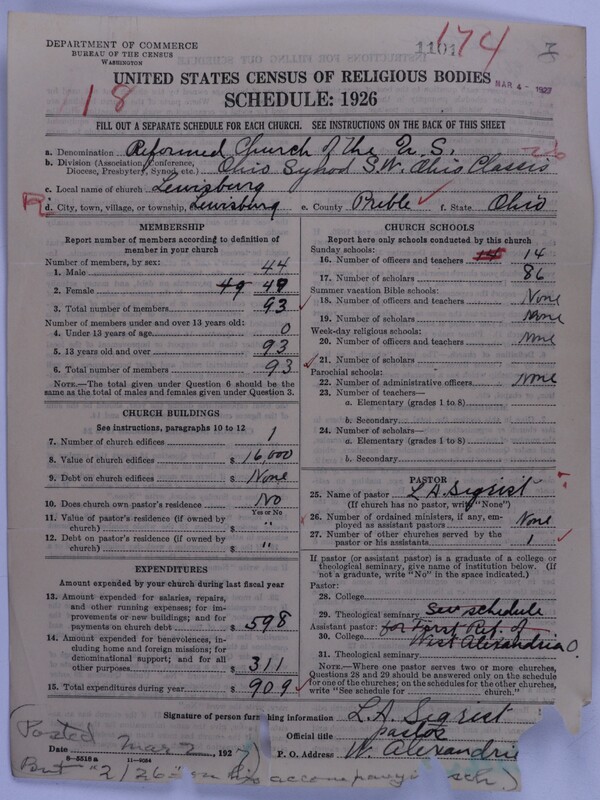 DEPARTMENT OF COMMERCE
BUREAU OF THE CENSUS
WASHINGTON
1101
174
I
MAR 4 - 1927
18
UNITED STATES CENSUS OF RELIGIOUS BODIES
SCHEDULE: 1926
FILL OUT A SEPARATE SCHEDULE FOR EACH CHURCH. SEE INSTRUCTIONS ON THE BACK OF THIS SHEET
a. Denomination Reformed Church of the U.S.
b. Division (Association, Conference, Diocese, Presbytery, Synod, etc.) Ohio Synod S.W. Ohio Classis
c. Local name of church Lewisburg
d. City, town, village, or township, Lewisburg e. County Preble f. State Ohio
MEMBERSHIP
Report number of members according to definition of
member in your church
Number of members, by sex:
1. Male 44
2. Female 49 49
3. Total number of members 93
Number of members under and over 13 years old:
4. Under 13 years of age 0
5. 13 years old and over 93
6. Total number of members 93
NOTE.—The total given under Question 6 should be
same as the total of males and females given under Question 3.
CHURCH BUILDINGS
See instructions, paragraphs 10 to 12
7. Number of church edifices 1
8. Value of church edifices $ 16,000
9. Debt on church edifices $ None
10. Does church own pastor's residence? No
Yes or No
11. Value of pastor's residence (if owned by
church) $ "
12. Debt on pastor's residence (if owned by
church) $ "
EXPENDITURES
Amount expended by your church during last fiscal year
13. Amount expended for salaries, repairs,
and other running expenses; for im-
provements or new buildings; and for
payments on church debt $ 598
14. Amount expended for benevolences, in-
cluding home and foreign missions; for
denominational support; and for all
other purposes $ 311
15. Total expenditures during year $ 909
CHURCH SCHOOLS
Report here only schools conducted by this church
Sunday schools:
16. Number of officers and teachers 14 14
17. Number of scholars 86
Summer vacation Bible schools:
18. Number of officers and teachers None
19. Number of scholars None
Week-day religious schools:
20. Number of officers and teachers None
21. Number of scholars
Parochial schools:
22. Number of administrative officers None
23. Number of teachers—
a. Elementary (grades 1 to 8)
b. Secondary
24. Number of scholars—
a. Elementary (grades 1 to 8)
b. Secondary
PASTOR
25. Name of pastor L.A. Sigrist
(If church has no pastor, write "None")
26. Number of ordained ministers, if any, em-
ployed as assistant pastors None
27. Number of other churches served by the
pastor or his assistants 1
If pastor (or assistant pastor) is a graduate of a college or
theological seminary, give name of institution below. (If
not a graduate, write "No" in the space indicated.)
Pastor:
28. College
29. Theological seminary See schedule
Assistant pastor: for First Ref. of
30. College West Alexandria O.
31. Theological seminary
NOTE.—Where one pastor serves two or more churches,
Questions 28 and 29 should be answered only on the schedule
for one of the churches; on the schedules for the other churches,
write "See schedule for church."
Signature of person furnishing information L.A. Sigrist
Official title pastor
(Posted
Date Mar 2, 1927)
P. O. Address W. Alexandria
8-5518 a 11-9034
But "2/26" on his accompanyi sch.)